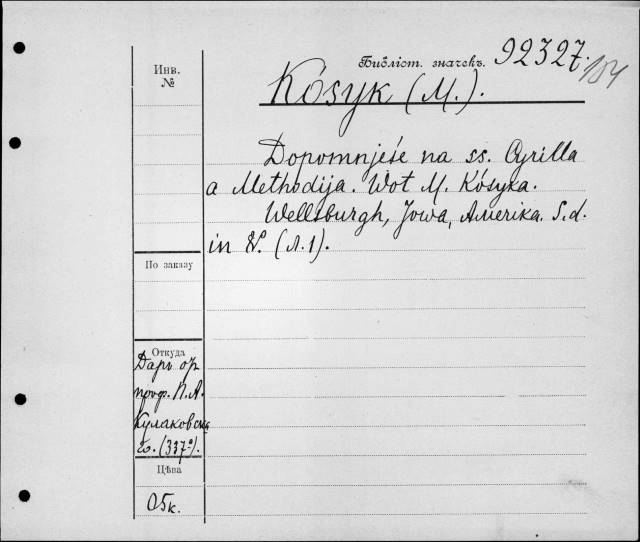 Библіот. значекъ. 92327.
104
Инв.
№
Kósyk (M.).
Dopomnjeśe na ss. Cyrilla
a Methodija. Wot M. Kósyka.
Wellsburgh, Jowa, Amerika. S. d.
in 8º. (л. 1).
По заказу
Откуда
Даръ
проф. П. А.
Кулаковска
го. (337º).
Цѣна
05к.